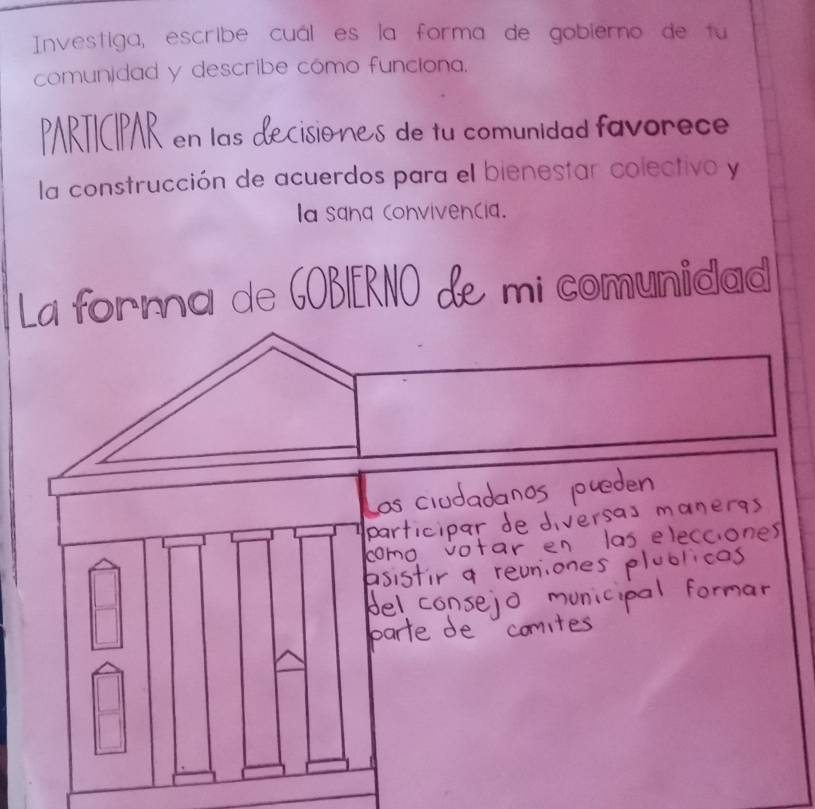 Investiga, escribe cuál es la forma de gobierno de tu
comunidad y describe cómo funciona.
PARTICIPAR en las decisiones de tu comunidad favorece
la construcción de acuerdos para el bienestar colectivo y
la sana convivencia.
La forma de GOBIERNO de mi comunidad
Los ciudadanos pueden
participar de diversas maneras
como votar en las elecciones
asistir a reuniones plublicas
del consejo municipal formar
parte de comites